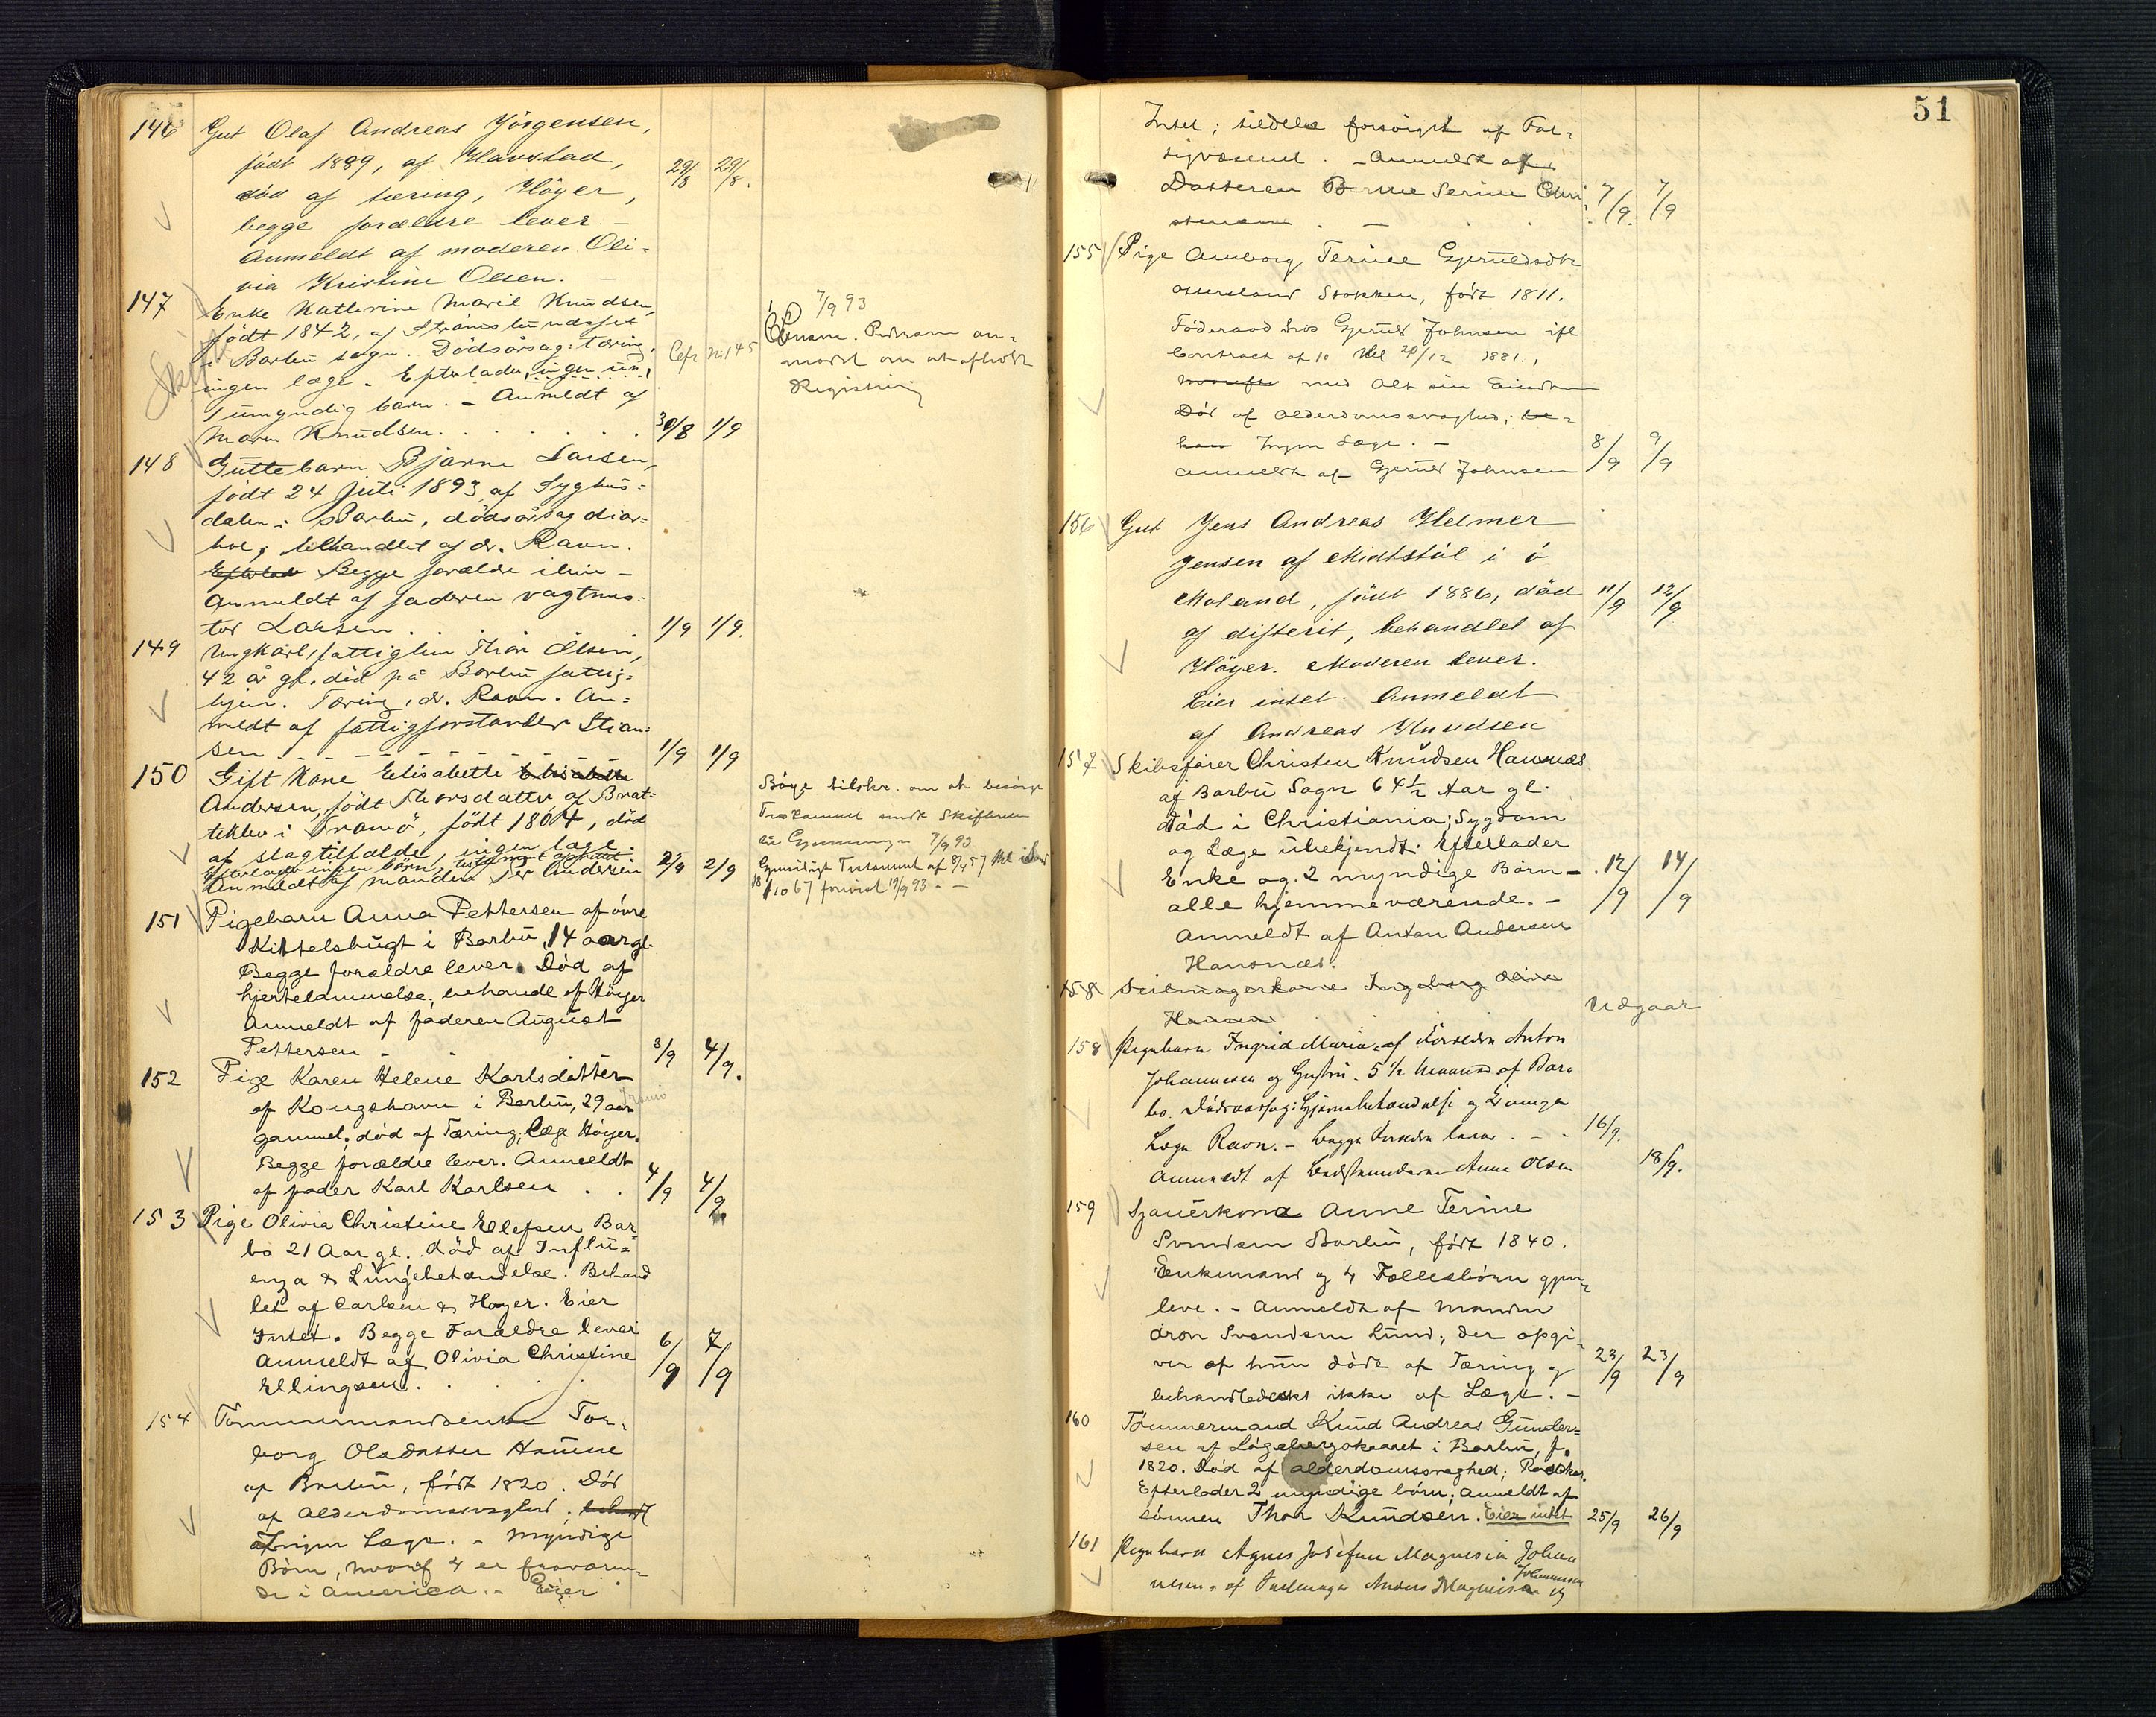 146 Gut Olaf Andreas Jörgensen,
født 1889, af Havstad,
død af tæring, Höyer, 29/8 29/8.
begge forældre lever. –
Anmeldt af moderen Oli-
via Kristine Olsen. –
147 Enke Kathrine Marie Knudsen,
født 1842, af
i Barbu sogn. Dødsårsag: tæring,
ingen læge. Efterlader, ingen
1 umyndig barn. – Anmeldt af
Maren Knudsen. 30/8 1/9
Cfr No 145
7/9 93
Lensm. Pedersen an-
modet om at afholde
Registrering
148 Guttebarn Bjarne Larsen,
født 24 Juli 1893 af Syghus-
dalen i Barbu, dødsårsag diar-
hoe, behandlet af dr. Ravn.
Efterlader Begge forældre ilive –
Anmeldt af faderen vagtmes-
ter Larsen. 1/9 1/9.
149 Ungkarl, fattiglem Thor Olsen,
42 år gl. død på Barbu fattig-
hjem. Tæring, dr. Ravn. An-
meldt af fattigforstander Stian-
sen. 1/9 1/9
150 Gift Kone Elisabeth Elisabeth
Andersen, født Thorsdatter af Brat-
teklev i Tromö, født 1804, død
af slagtilfælde, ingen læge.
Efterlader ingen börn, testament oprettet
Anmeldt af manden Per Andersen 2/9 2/9
Böye tilskr. om at besörge
Testament sendt Skifteretten
7/9 93
Gjensidigt Testament af
1067 forevist 19/9 93. –
151 Pigebarn Anna Pettersen af övre
Kittelsbugt i Barbu, 14 aar gl.
Begge forældre lever. Død af
hjertelammelse, behandl. af Höyer
Anmeldt af faderen August
Pettersen 3/9 4/9.
152 Pige Karen Helene Karlsdatter
af Kongshavn i Barbu, 29 aar Tromö
gammel, død af Tæring, Læge Höyer.
Begge forældre lever. Anmeldt
af fader Karl Karlsen 4/9 4/9
153 Pige Olivia Christine Ellefsen Bar-
bo 21 Aar gl. død af Influ-
enza & Lungebetændelse. Behand
let af Carlsen & Høyer. Eier
Intet. Begge Forældre lever
Anmeldt af Olivia Christine
Ellingsen. 6/9 7/9
154 Tømmermandsenke Tor-
borg Olsdatter
af Barbu, født 1820. Død
af Alderdomssvaghed; behandl
Ingen Læge. – Myndige
Börn, hvoraf 4 er fraværen-
de i America. – Eier
51
Intet; tildels forsörget af Fat-
tigvæsenet. – Anmeldt af
Datteren Serine Chri 7/9. 7/9
stensen. –
155 Pige Amborg Terine Gjeruldsdtr
Stokken, født 1811.
Föderaad hos Gjeruld Johnsen ifl
Contract af 10 1881.,
hvorefter med Alt sin Eiendom
Död af Alderdomssvaghed; be-
han Ingen Læge. –
Anmeldt af Gjeruld Johnsen 8/9 9/9
156 Gut Jens Andreas Helmer
Jensen af Midtstöl i ö
Moland, født 1886, död 11/9 12/9.
af difterit, behandlet af
Höyer. Moderen lever.
Eier intet. Anmeldt
af Andreas Knudsen
157 Skibsfører Christen Knudsen Hansnæs
af Barbu Sogn 64 1/2 Aar gl.
död i Christiania; Sygdom
og Læge ubekjendt. Efterlader
Enke og 2 myndige Börn –. 12/9 14/9
alle hjemmeværende. –
Anmeldt af Anton Andersen
Hansnæs.
158 Seilmagerkone Ingeborg Oline
Hansen Udgaar
158 Pigebarn Ingrid Maria, af Forældre Anton
Johannesen og Hustru. 5 1/2 Maaned af Bar-
bo. Dödsaarsag: Hjernebetændelse og
Læge Ravn. – Begge Forældre lever. – 16/9.
Anmeldt af Anne Olsen 18/9.
159 Sjauerkone Anne Terine
Svendsen Barbu, født 1840.
Enkemand og 4 Fællesbörn gjen-
leve. – Anmeldt af Manden
Aron Svendsen Lund; der opgi-
ver at hun døde af Tæring og 23/9 23/9
behandledes ikke af Læge. –
160 Tömmermand Knud Andreas Gunder-
sen af Lögebergskaaret i Barbu, f.
1820. Död af alderdomssvaghed;
Efterlader 2 myndige börn. Anmeldt af
sönnen Thor Knudsen. Eier intet 25/9 26/9
161 Pigebarn Agnes Josefine Magnesia Johan
nesen, af Anders Magnus Johannesen og